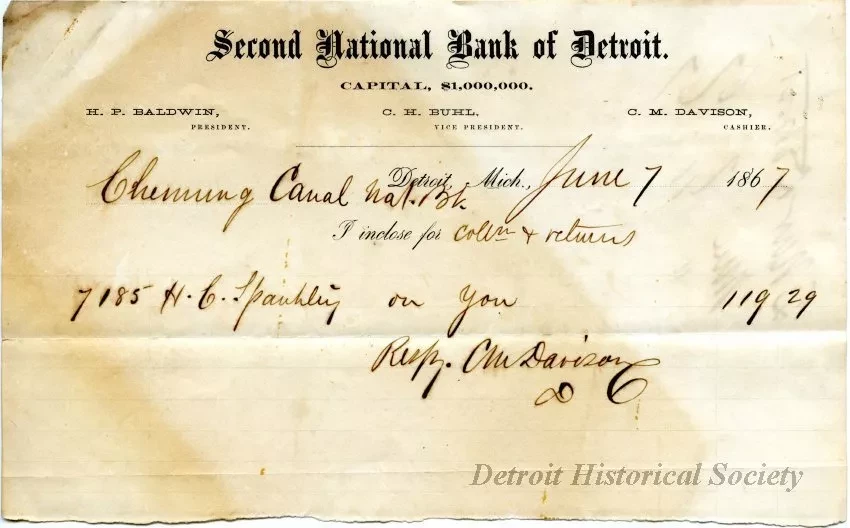 Second National Bank of Detroit.
CAPITAL, $1,000,000.
H. P. BALDWIN, C. H. BUHL, C. M. DAVISON,
PRESIDENT. VICE PRESIDENT. CASHIER.
Detroit, Mich., June 7 1867
Chemung Canal Nat. Bk
I inclose for collн & returns
7185 H. C. Spaulding on you 119 29
Respy. CM Davison
C
Detroit Historical Society